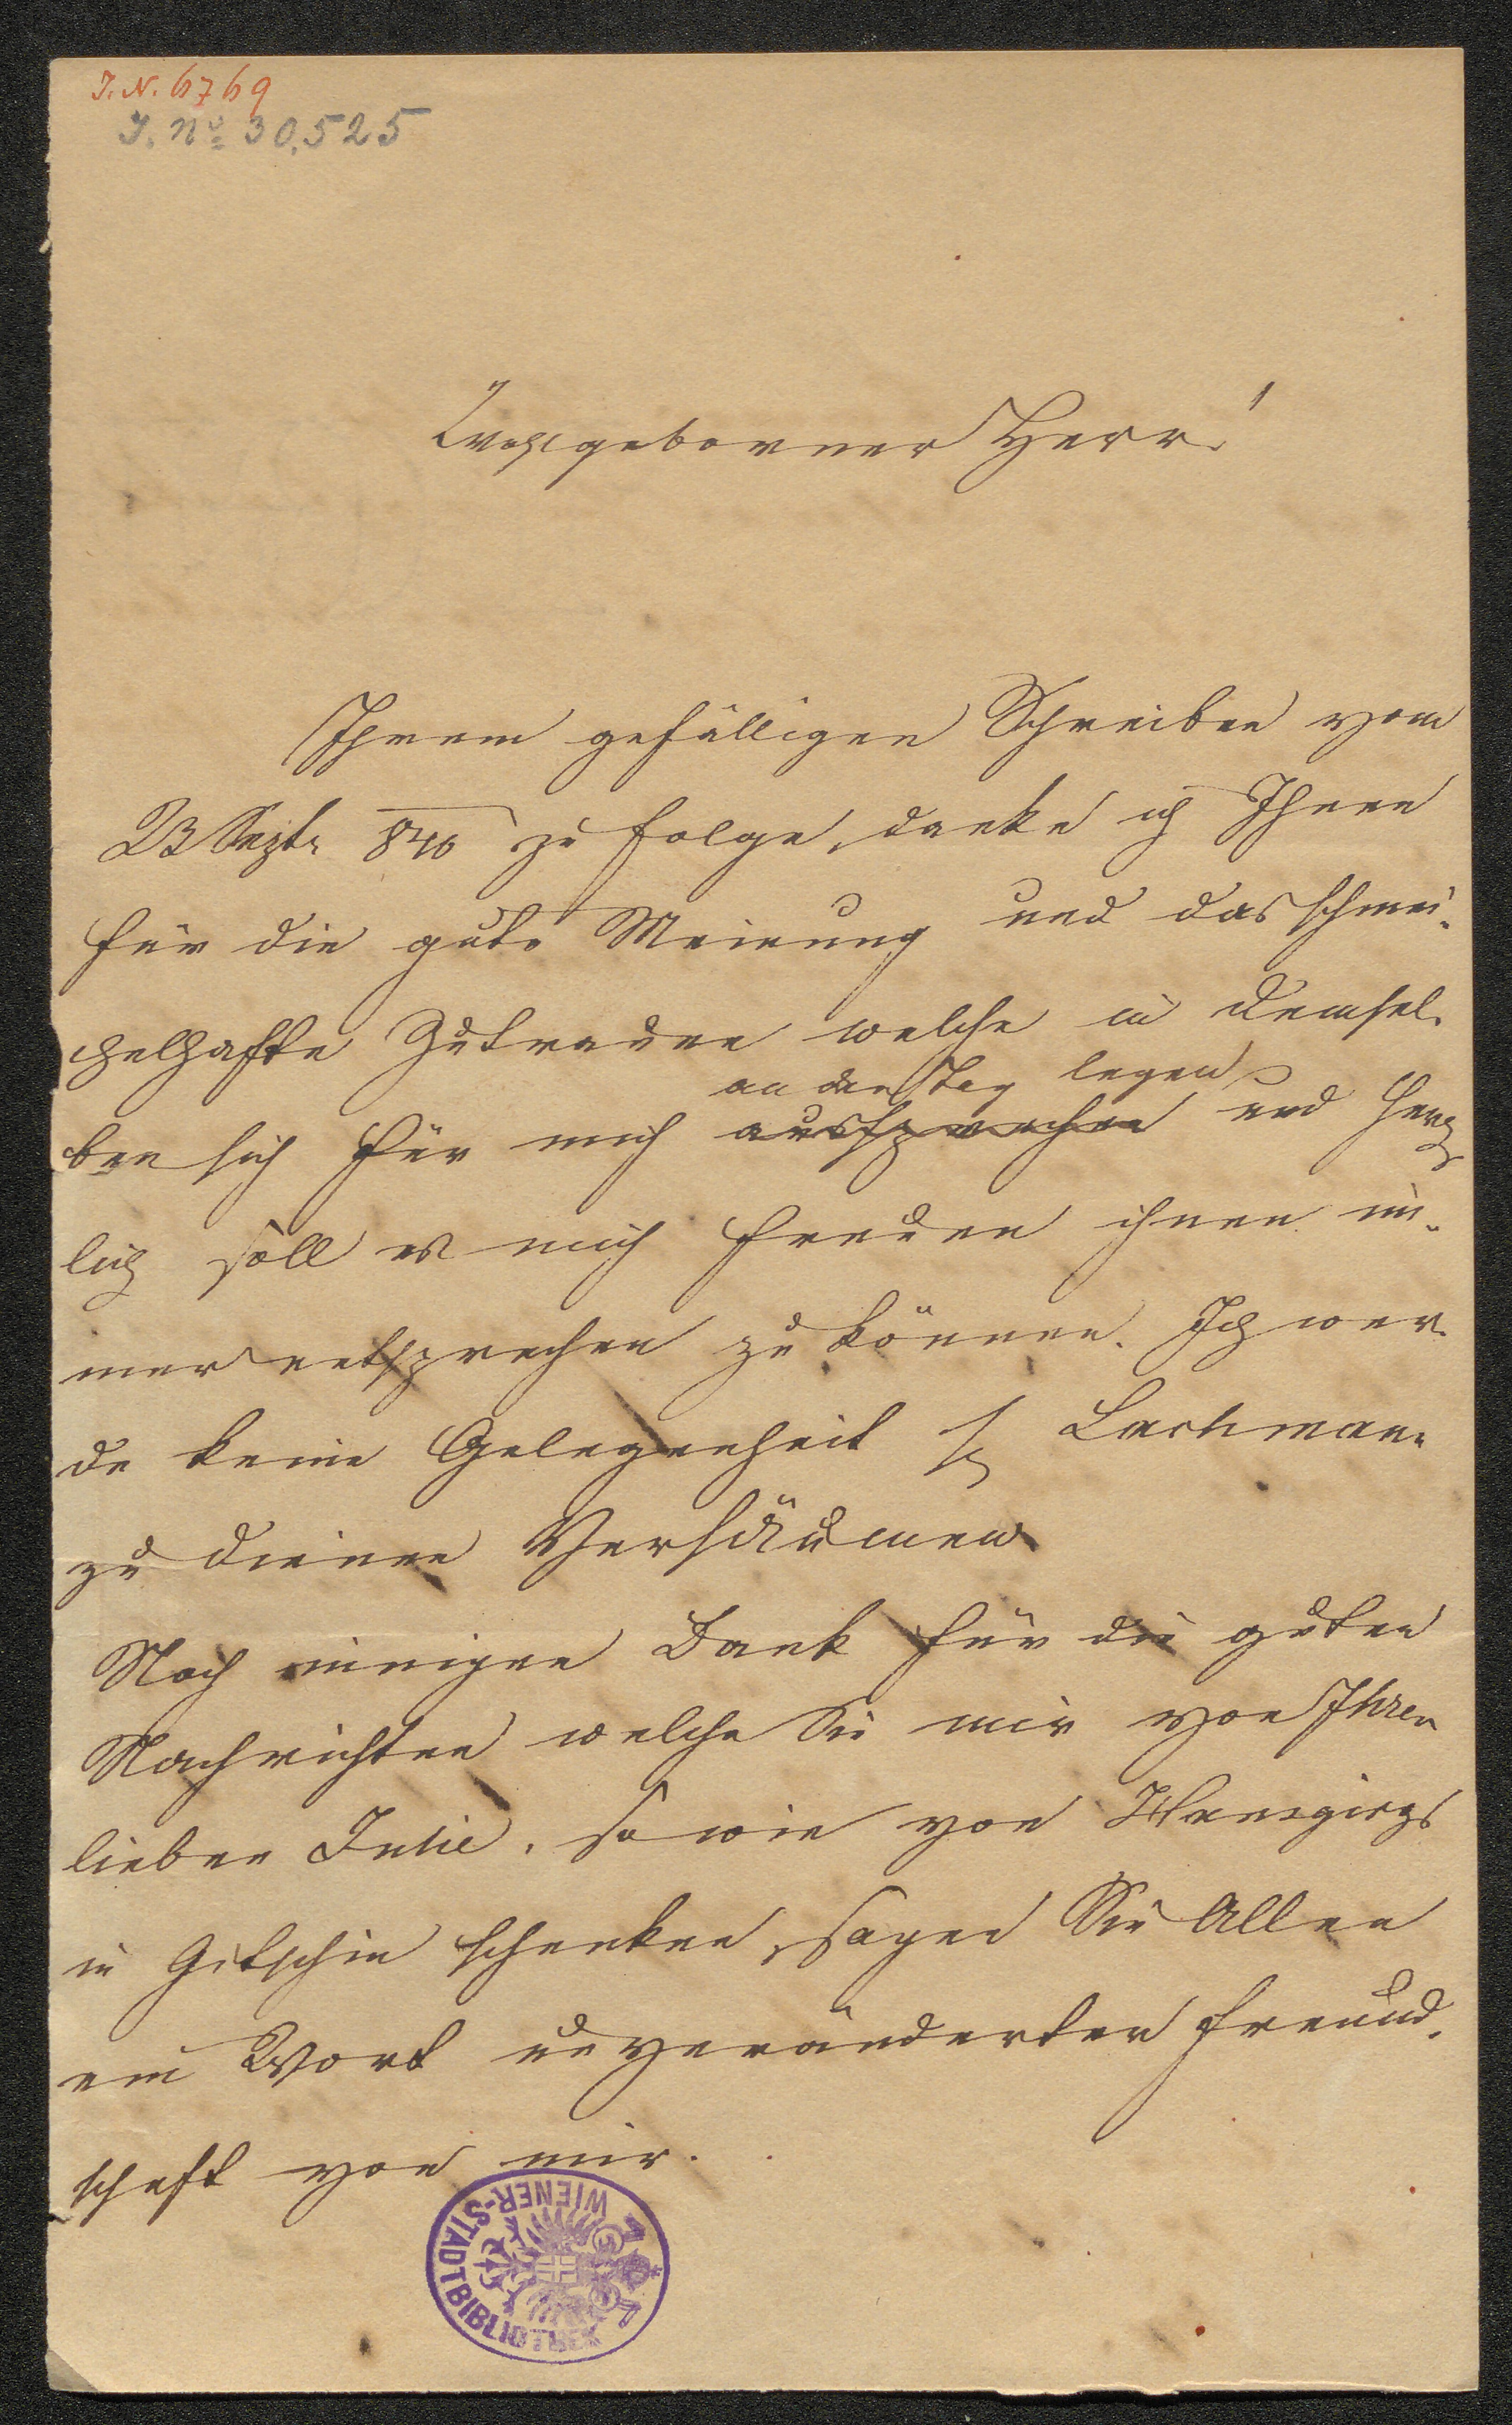 J. N. 6769
J. No 30,525
Wohlgeborner Herr!
Ihrem gefälligen Schreiben vom
23 Septr 840 zu folge, danke ich Ihnen
für die gute Meinung und das schmei-
chelhafte Zutrauen welche in demsel-
an den Tag legen
ben sich für mich aussprechen und herz
lich soll es mich freuen ihnen im-
mer entsprechen zu können. Ich wer-
de keine Gelegenheit H Lachman-
zu dienen Versäumen
Noch innigen Dank für die guten
Nachrichten welche Sie mir von Ihrer
lieben Julie, so wie von
in Gitschin schenken, sagen Sie Allen
ein Wort unveränderter Freund-
schaft von mir.
WIENER-STADTBIBLIOTHEK